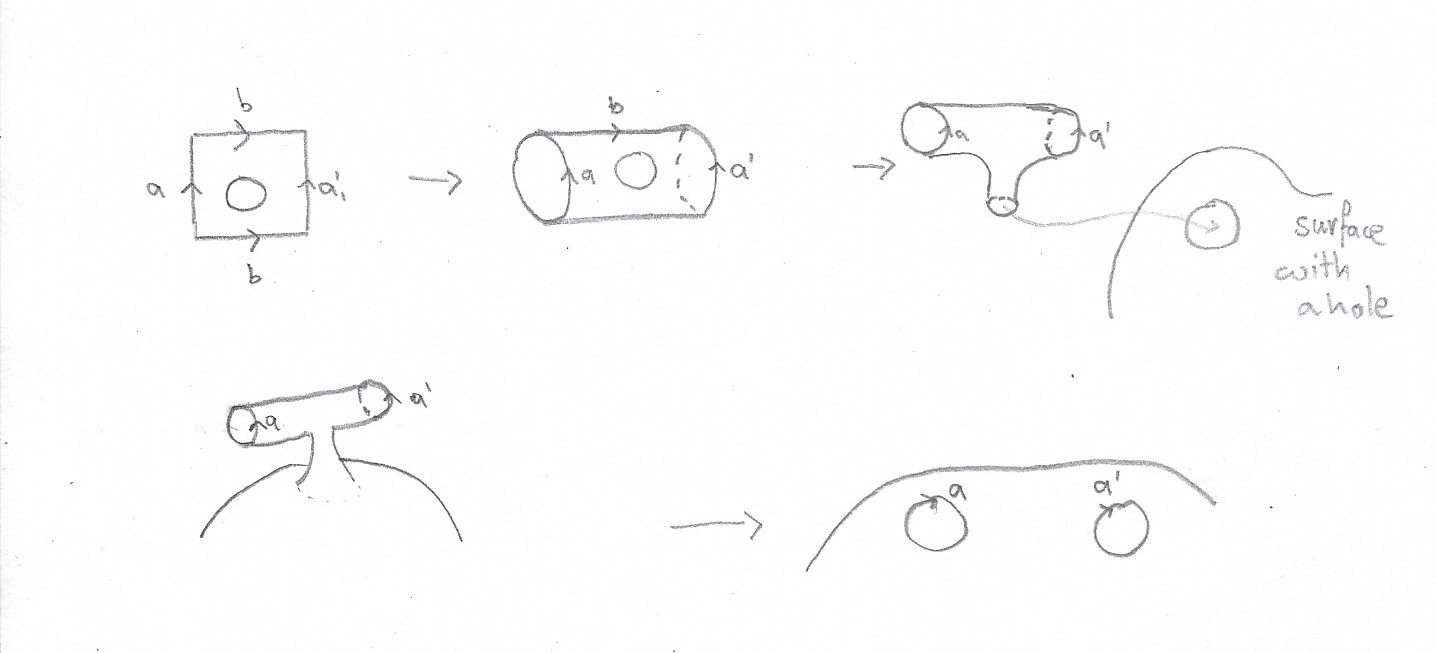 b
a
a'
b
b
a
a'
a
a'
surface
with
a hole
a
a'
a
a'